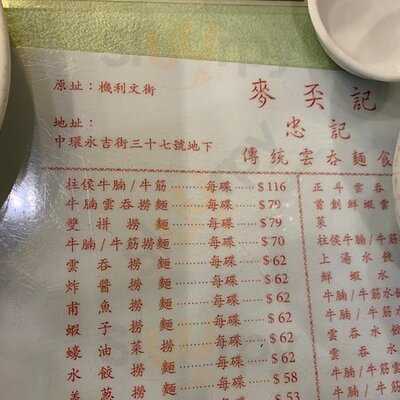 原址：機利文街
麥奀記
忠記
地址：
中環永吉街三十七號地下
傳統雲吞麵食
柱侯牛腩/牛筋……每碟……$116
牛腩雲吞撈麵……每碟……$79
雙拼撈麵……每碟……$79
牛腩/牛筋撈麵……每碟……$70
雲吞撈麵……每碟……$62
炸醬撈麵……每碟……$62
甫魚撈麵……每碟……$62
蝦子撈麵……每碟……$62
蠔油菜……每碟……$62
水餃撈麵……每碟……$58
撈麵……每碟……$53
正斗雲吞
首創鮮蝦雲
菜
柱侯牛腩/牛
上湯水餃
鮮蝦水
牛腩/牛筋水
牛腩/牛筋
雲吞水
雲吞
牛腩/牛